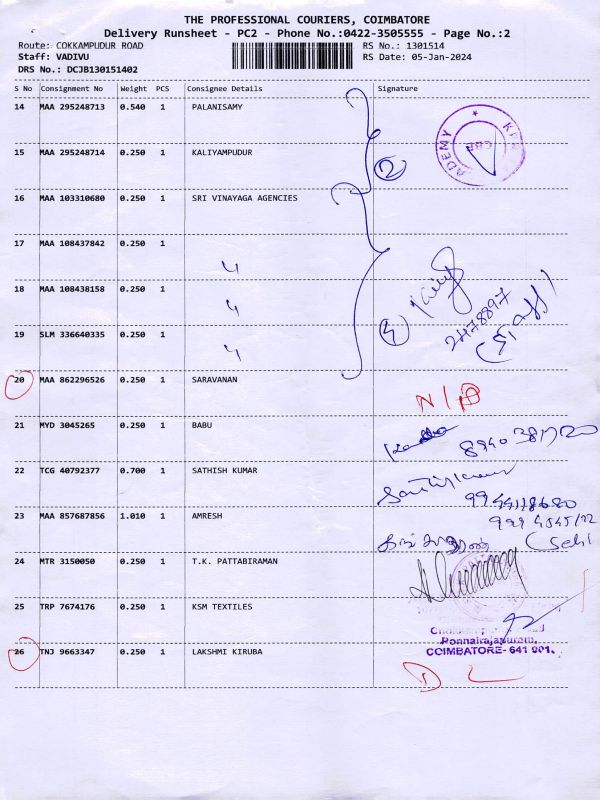 THE PROFESSIONAL COURIERS, COIMBATORE
Delivery Runsheet - PC2 - Phone No.:0422-3505555 - Page No.:2
Route: COKKAMPUDUR ROAD RS No.: 1301514
Staff: VADIVU RS Date: 05-Jan-2024
DRS No.: DCJB130151402
S No Consignment No Weight PCS Consignee Details Signature
14 MAA 295248713 0.540 1 PALANISAMY
15 MAA 295248714 0.250 1 KALIYAMPUDUR
2
ADEMY
16 MAA 103310680 0.250 1 SRI VINAYAGA AGENCIES
17 MAA 108437842 0.250 1
18 MAA 108438158 0.250 1
19 SLM 336640335 0.250 1
20 MAA 862296526 0.250 1 SARAVANAN
21 MYD 3045265 0.250 1 BABU
22 TCG 40792377 0.700 1 SATHISH KUMAR
23 MAA 857687856 1.010 1 AMRESH
24 MTR 3150050 0.250 1 T.K. PATTABIRAMAN
25 TRP 7674176 0.250 1 KSM TEXTILES
Ponnairajapuram,
26 TNJ 9663347 0.250 1 LAKSHMI KIRUBA COIMBATORE- 641 001.
D L